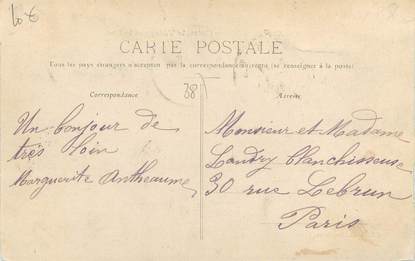 10 €
CARTE POSTALE
Tous les pays étrangers n'acceptent pas la correspondance au recto (se renseigner à la poste)
Correspondance
38
Adresse
Un bonjour de
très loin
Marguerite Antheaume
Monsieur et Madame
Landry blanchisseuse
30 rue Lebrun
Paris